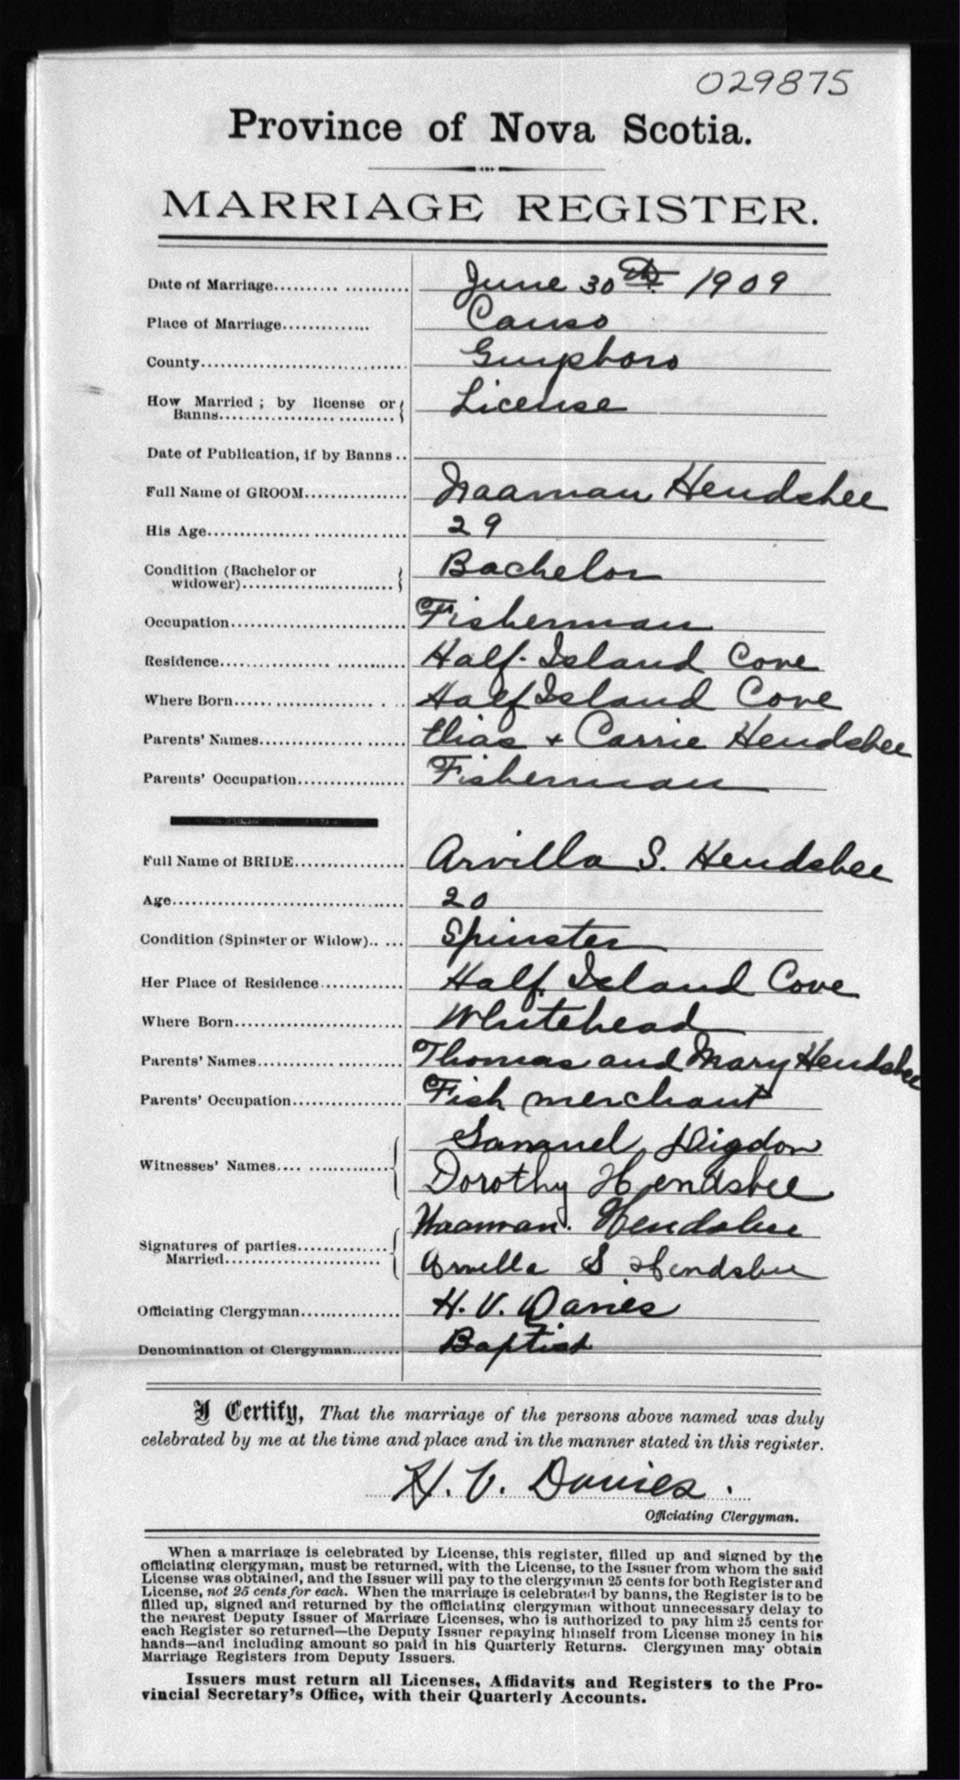 029875
Province of Nova Scotia.
MARRIAGE REGISTER.
Date of Marriage.................... June 30th 1909
Place of Marriage.............. Canso
County.............................. Guysboro
How Married ; by license or
Banns.......................... License
Date of Publication, if by Banns ..
Full Name of GROOM................ Naaman Hendsbee
His Age............................... 29
Condition (Bachelor or
widower)....................... Bachelor
Occupation.......................... Fisherman
Residence............................ Half Island Cove
Where Born......................... Half Island Cove
Parents' Names....................... Elias + Carrie Hendsbee
Parents' Occupation................ Fisherman
Full Name of BRIDE................ Arvilla S. Hendsbee
Age.................................... 20
Condition (Spinster or Widow)..... Spinster
Her Place of Residence............. Half Island Cove
Where Born......................... Whitehead
Parents' Names....................... Thomas and Mary Hendsbee
Parents' Occupation................ Fish merchant
Samuel Digdon
Witnesses' Names.................
Dorothy Hendsbee
Naaman. Hendsbee
Signatures of parties..............
Married.........................
Arvilla S Hendsbee
Officiating Clergyman.............. H. V. Davies
Denomination of Clergyman........ Baptist
I Certify, That the marriage of the persons above named was duly
celebrated by me at the time and place and in the manner stated in this register.
H. V. Davies.
Officiating Clergyman.
When a marriage is celebrated by License, this register, filled up and signed by the
officiating clergyman, must be returned, with the License, to the Issuer from whom the said
License was obtained, and the Issuer will pay to the clergyman 25 cents for both Register and
License, not 25 cents for each. When the marriage is celebrated by banns, the Register is to be
filled up, signed and returned by the officiating clergyman without unnecessary delay to
the nearest Deputy Issuer of Marriage Licenses, who is authorized to pay him 25 cents for
each Register so returned—the Deputy Issuer repaying himself from License money in his
hands—and including amount so paid in his Quarterly Returns. Clergymen may obtain
Marriage Registers from Deputy Issuers.
Issuers must return all Licenses, Affidavits and Registers to the Pro-
vincial Secretary's Office, with their Quarterly Accounts.